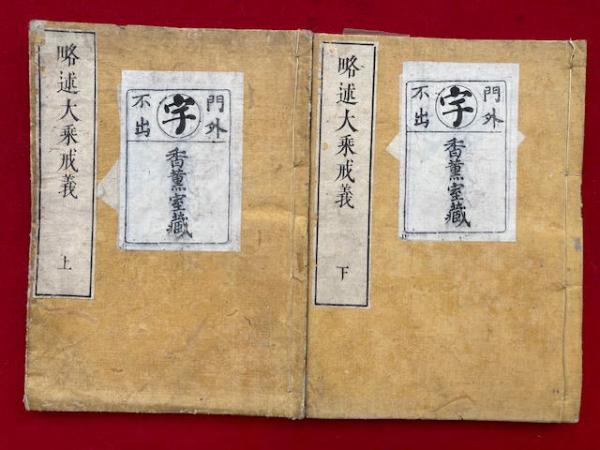 略述大乘戒義 上
門外
字
不出
香薫室藏
略述大乘戒義 下
門外
字
不出
香薫室藏